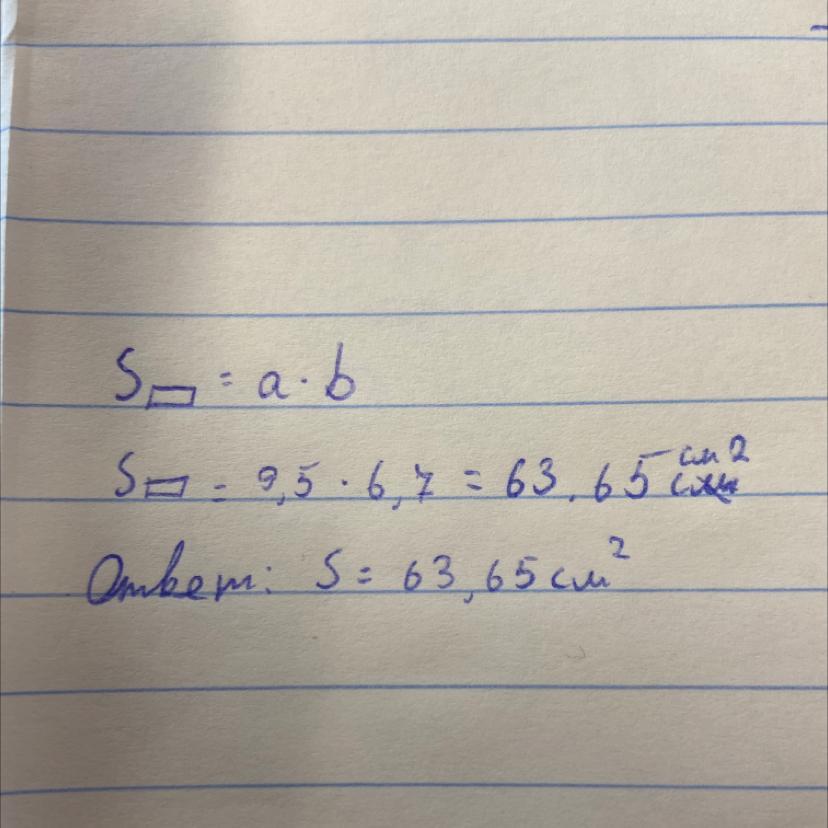 S▭ = a · b
S▭ = 9,5 · 6,7 = 63.65 см²
Ответ: S = 63,65 см²